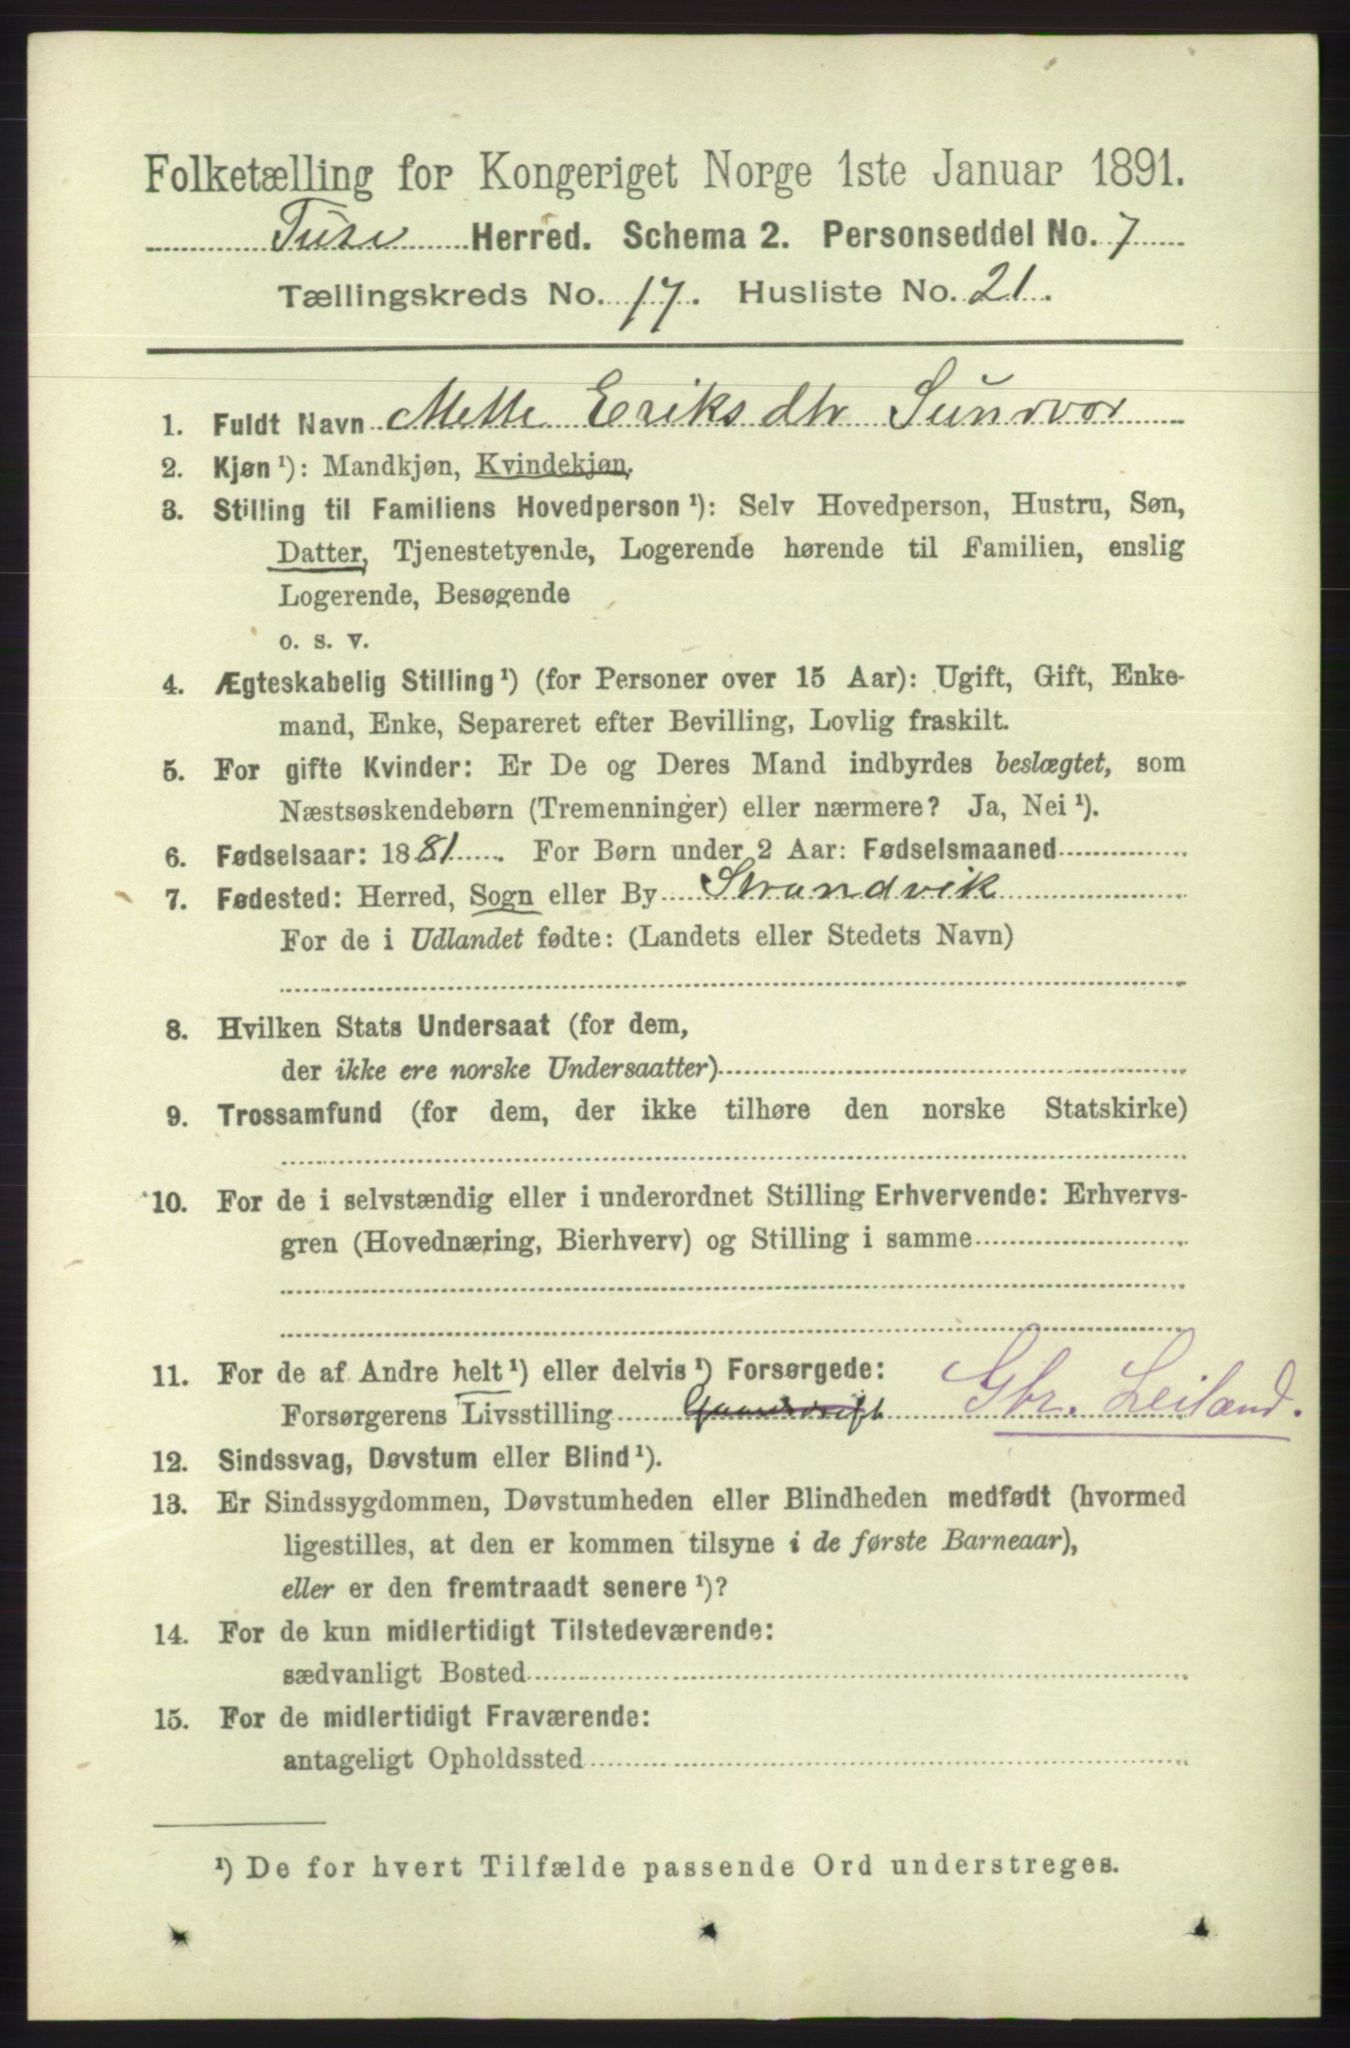 Folketælling for Kongeriget Norge 1ste Januar 1891.
Fuse Herred. Schema 2. Personseddel No. 7
Tællingskreds No. 17. Husliste No. 21.
1. Fuldt Navn Mette Eriksdtr Sundvor
2. Kjøn ¹): Mandkjøn, Kvindekjøn.
3. Stilling til Familiens Hovedperson ¹): Selv Hovedperson, Hustru, Søn,
Datter, Tjenestetyende, Logerende hørende til Familien, enslig
Logerende, Besøgende
o. s. v.
4. Ægteskabelig Stilling ¹) (for Personer over 15 Aar): Ugift, Gift, Enke-
mand, Enke, Separeret efter Bevilling, Lovlig fraskilt.
5. For gifte Kvinder: Er De og Deres Mand indbyrdes beslægtet, som
Næstsøskendebørn (Tremenninger) eller nærmere? Ja, Nei ¹).
6. Fødselsaar: 1881. For Børn under 2 Aar: Fødselsmaaned
7. Fødested: Herred, Sogn eller By Strandvik
For de i Udlandet fødte: (Landets eller Stedets Navn)
8. Hvilken Stats Undersaat (for dem,
der ikke ere norske Undersaatter)
9. Trossamfund (for dem, der ikke tilhøre den norske Statskirke)
10. For de i selvstændig eller i underordnet Stilling Erhvervende: Erhvervs-
gren (Hovednæring, Bierhverv) og Stilling i samme
11. For de af Andre helt ¹) eller delvis ¹) Forsørgede:
Forsørgerens Livsstilling Gaardsdrift Gbr. Leiland.
12. Sindssvag, Døvstum eller Blind ¹).
13. Er Sindssygdommen, Døvstumheden eller Blindheden medfødt (hvormed
ligestilles, at den er kommen tilsyne i de første Barneaar),
eller er den fremtraadt senere ¹)?
14. For de kun midlertidigt Tilstedeværende:
sædvanligt Bosted
15. For de midlertidigt Fraværende:
antageligt Opholdssted
¹) De for hvert Tilfælde passende Ord understreges.